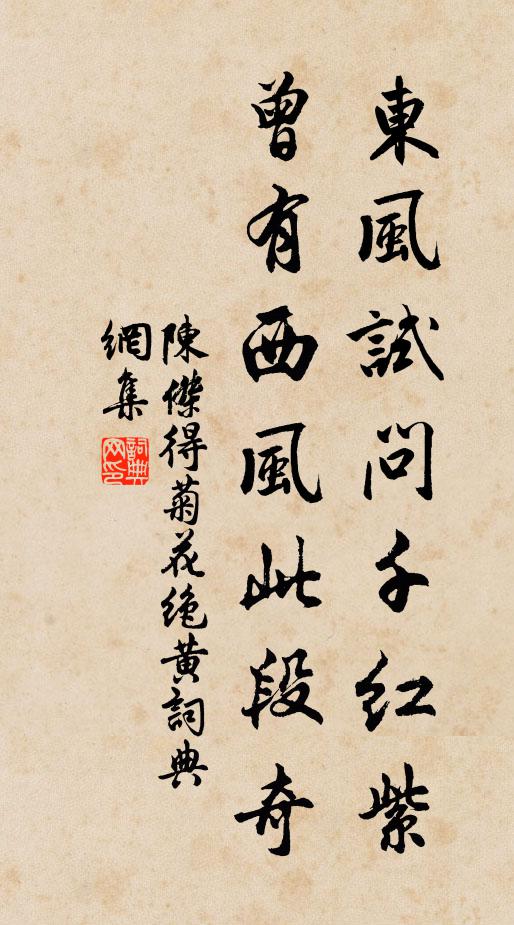 東風試問千紅紫
曾有西風此段奇
陳傑得菊花絶黄詞典
網集
詞典網印